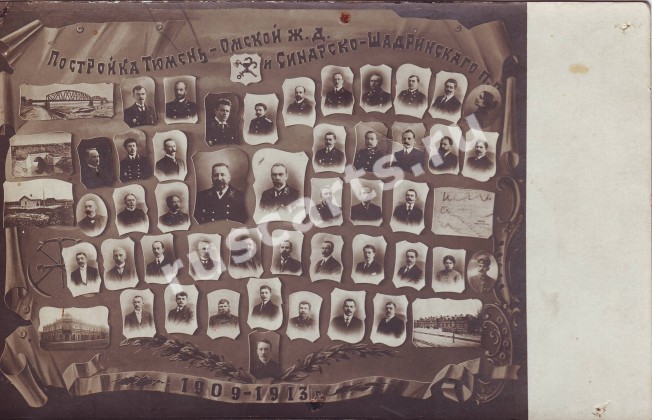 Постройка Тюмень-Омской ж.д.
и Синарско-Шадринскаго
1909-1913 г.
ruscarts.ru